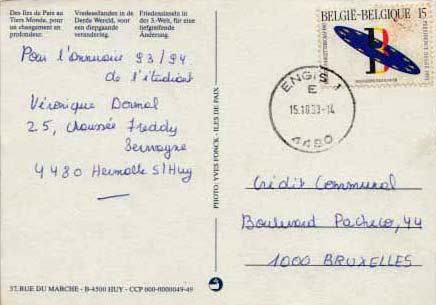 Des Iles de Paix au
Tiers Monde, pour
un changement en
profondeur.
Vredeseilanden in de
Derde Wereld, voor
een diepgaande
verandering.
Friedensinseln in
der 3.-Welt, für eine
tiefgreifende
Änderung.
BELGIË-BELGIQUE 15
ENGIS 1
E
15.10.93-14
4480
Pour l'annuaire 93/94
de l'étudiant
Véronique Dormal
25, Chaussée Freddy
Terwagne
4480 Hermalle S/Huy
PHOTO: YVES FONCK - ILES DE PAIX
Crédit Communal
Boulevard Pacheco, 44
1000 BRUXELLES
37, RUE DU MARCHE - B-4500 HUY - CCP 000-0000049-49